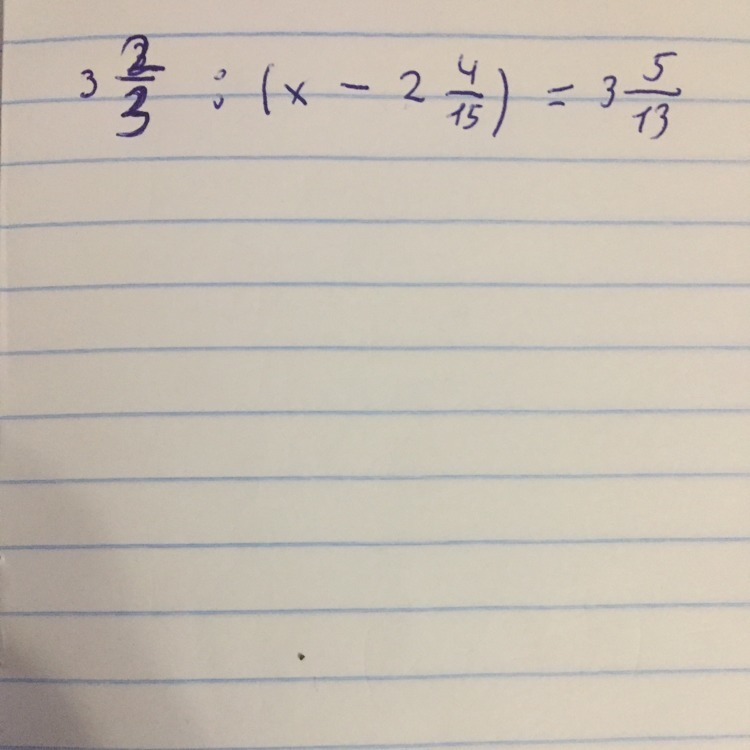 3 2/3 : (x - 2 4/15) = 3 5/13